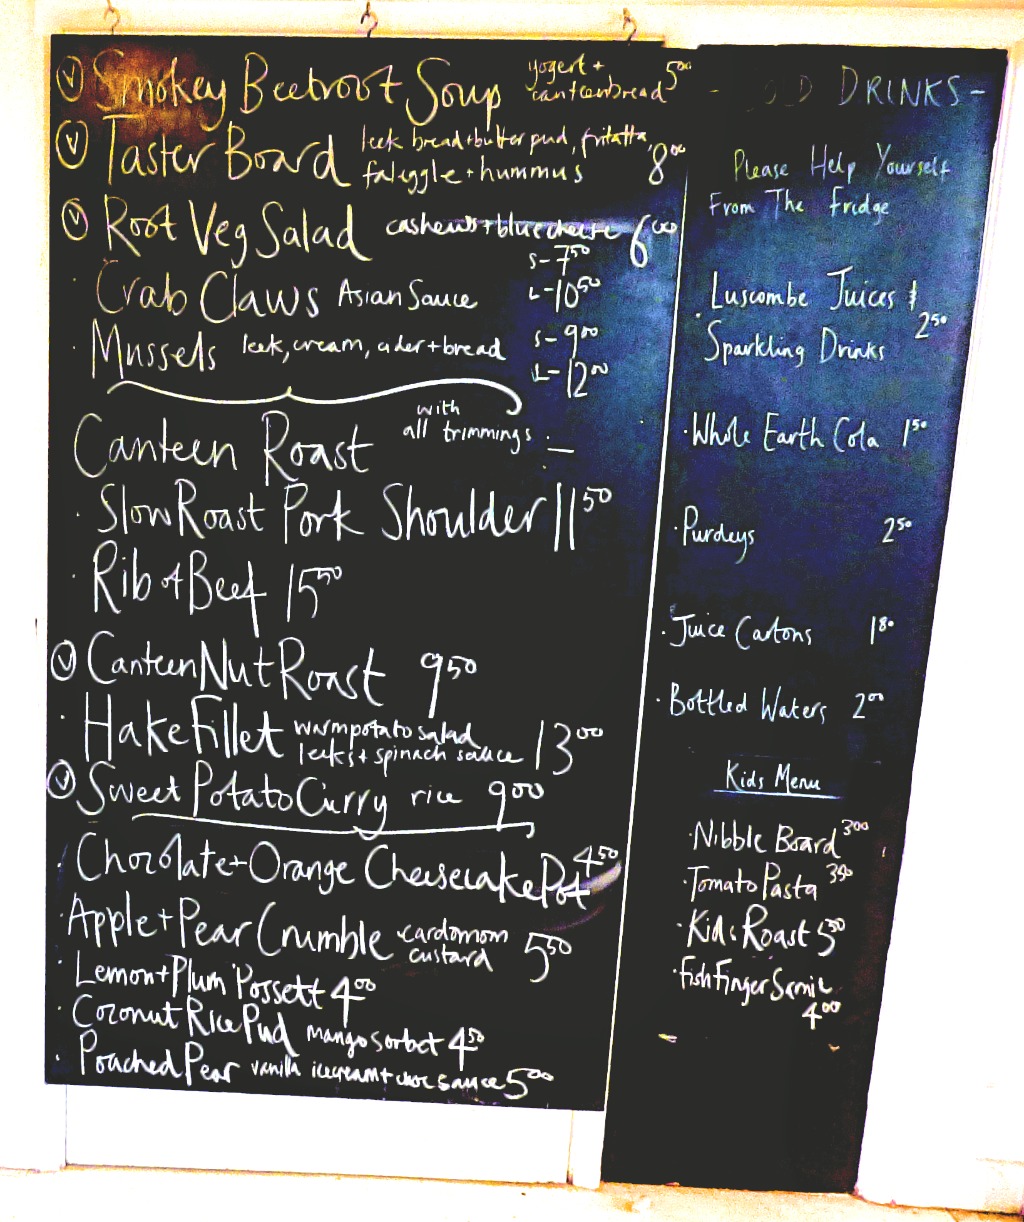 Ⓥ Smokey Beetroot Soup yogert + canteenbread 5⁰⁰
Ⓥ Taster Board leek bread+butter pud, fritatta, faleggle + hummus 8⁰⁰
Ⓥ Root Veg Salad cashews + blue cheese 6⁰⁰
· Crab Claws Asian Sauce S-7⁵⁰ L-10⁵⁰
· Mussels leek, cream, cider + bread S-9⁰⁰ L-12⁰⁰
Canteen Roast with all trimmings :—
· Slow Roast Pork Shoulder 11⁵⁰
· Rib of Beef 15⁵⁰
Ⓥ Canteen Nut Roast 9⁵⁰
· Hake Fillet warm potato salad leeks + spinach sauce 13⁰⁰
Ⓥ Sweet Potato Curry rice 9⁰⁰
· Chocolate + Orange Cheesecake Pot 4⁵⁰
· Apple + Pear Crumble cardomom custard 5⁵⁰
· Lemon + Plum Possett 4⁰⁰
· Coconut Rice Pud mango sorbet 4⁵⁰
· Poached Pear vanilla icecream + choc sauce 5⁰⁰
- DRINKS -
Please Help Yourself
From The Fridge
· Luscombe Juices &
Sparkling Drinks 2⁵⁰
· Whole Earth Cola 1⁵⁰
· Purdeys 2⁵⁰
· Juice Cartons 1⁸⁰
· Bottled Waters 2⁰⁰
Kids Menu
· Nibble Board 3⁰⁰
· Tomato Pasta 3⁵⁰
· Kids Roast 5⁵⁰
· Fish Finger Sarnie
4⁰⁰